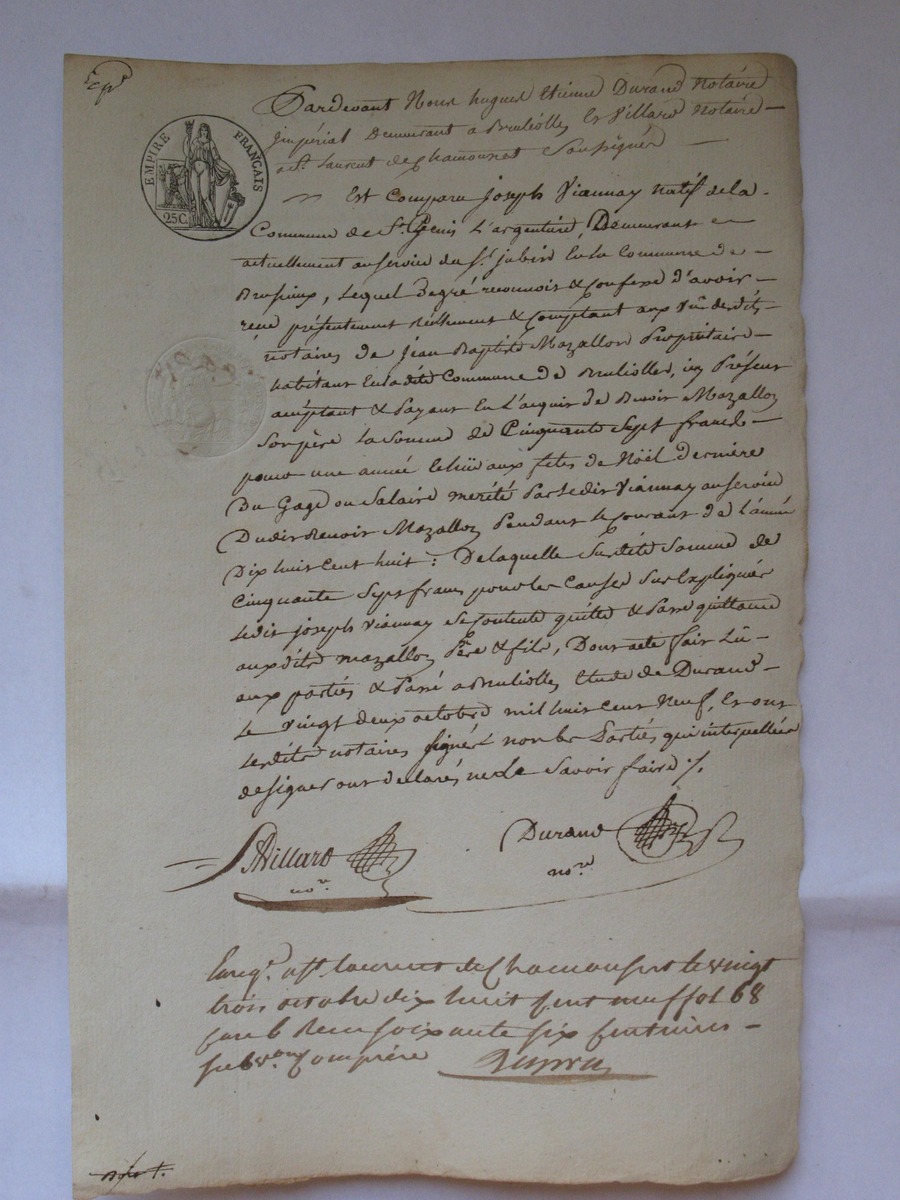 Exp.on
EMPIRE FRANÇAIS
25 C.
Pardevant Nous hugues Etienne Durand Notaire
impérial Demeurant a Bruliolles Et Villard Notaire
a St. Laurent de Chamousset Soussignés
Est Comparu Joseph Viannay natif de la
Commune de St. Genis L'argentiere, Demeurant
actuellement au service du Sr. jubin En la Commune de
Brussieux, Lequel de gré reconnois & Confesse d'avoir
reçu présentement réellement & Comptant aux vue desdits
notaires de Jean Baptiste Mazallon Propriétaire
habitant En la dite Commune de Brulliolles, icy Présent
acceptant & Payant En L'acquit de Benoit Mazallon
Son père La Somme de Cinquante Sept francs
pour une année Echüe aux fêtes de Noël derniere
Du Gage ou Salaire merité Par Ledit Viannay au service
Dudit Benoit Mazallon Pendant le Courant de l'année
Dix huit Cent huit : De laquelle Susdite Somme de
Cinquante Sept francs pour les Causes Sus Expliquées
Ledit joseph Viannay Se Contente quitte & Passe quittance
auxdits mazallon Père & fils, Dont acte fait Lû
aux parties & Passé a Brulliolles Etude de Durand
Le vingt deux octobre mil huit Cent Neuf, Et ont
Lesdits notaires Signés non les Parties qui interpellées
de signer ont declaré ne Le Savoir faire ./.
Villard Durand
nore nore
Enregé. a St. Laurent de Chamousset le vingt
trois octobre dix huit cent neuf fol 68
case 6 Reçu soixante six centimes
subvon Comprise